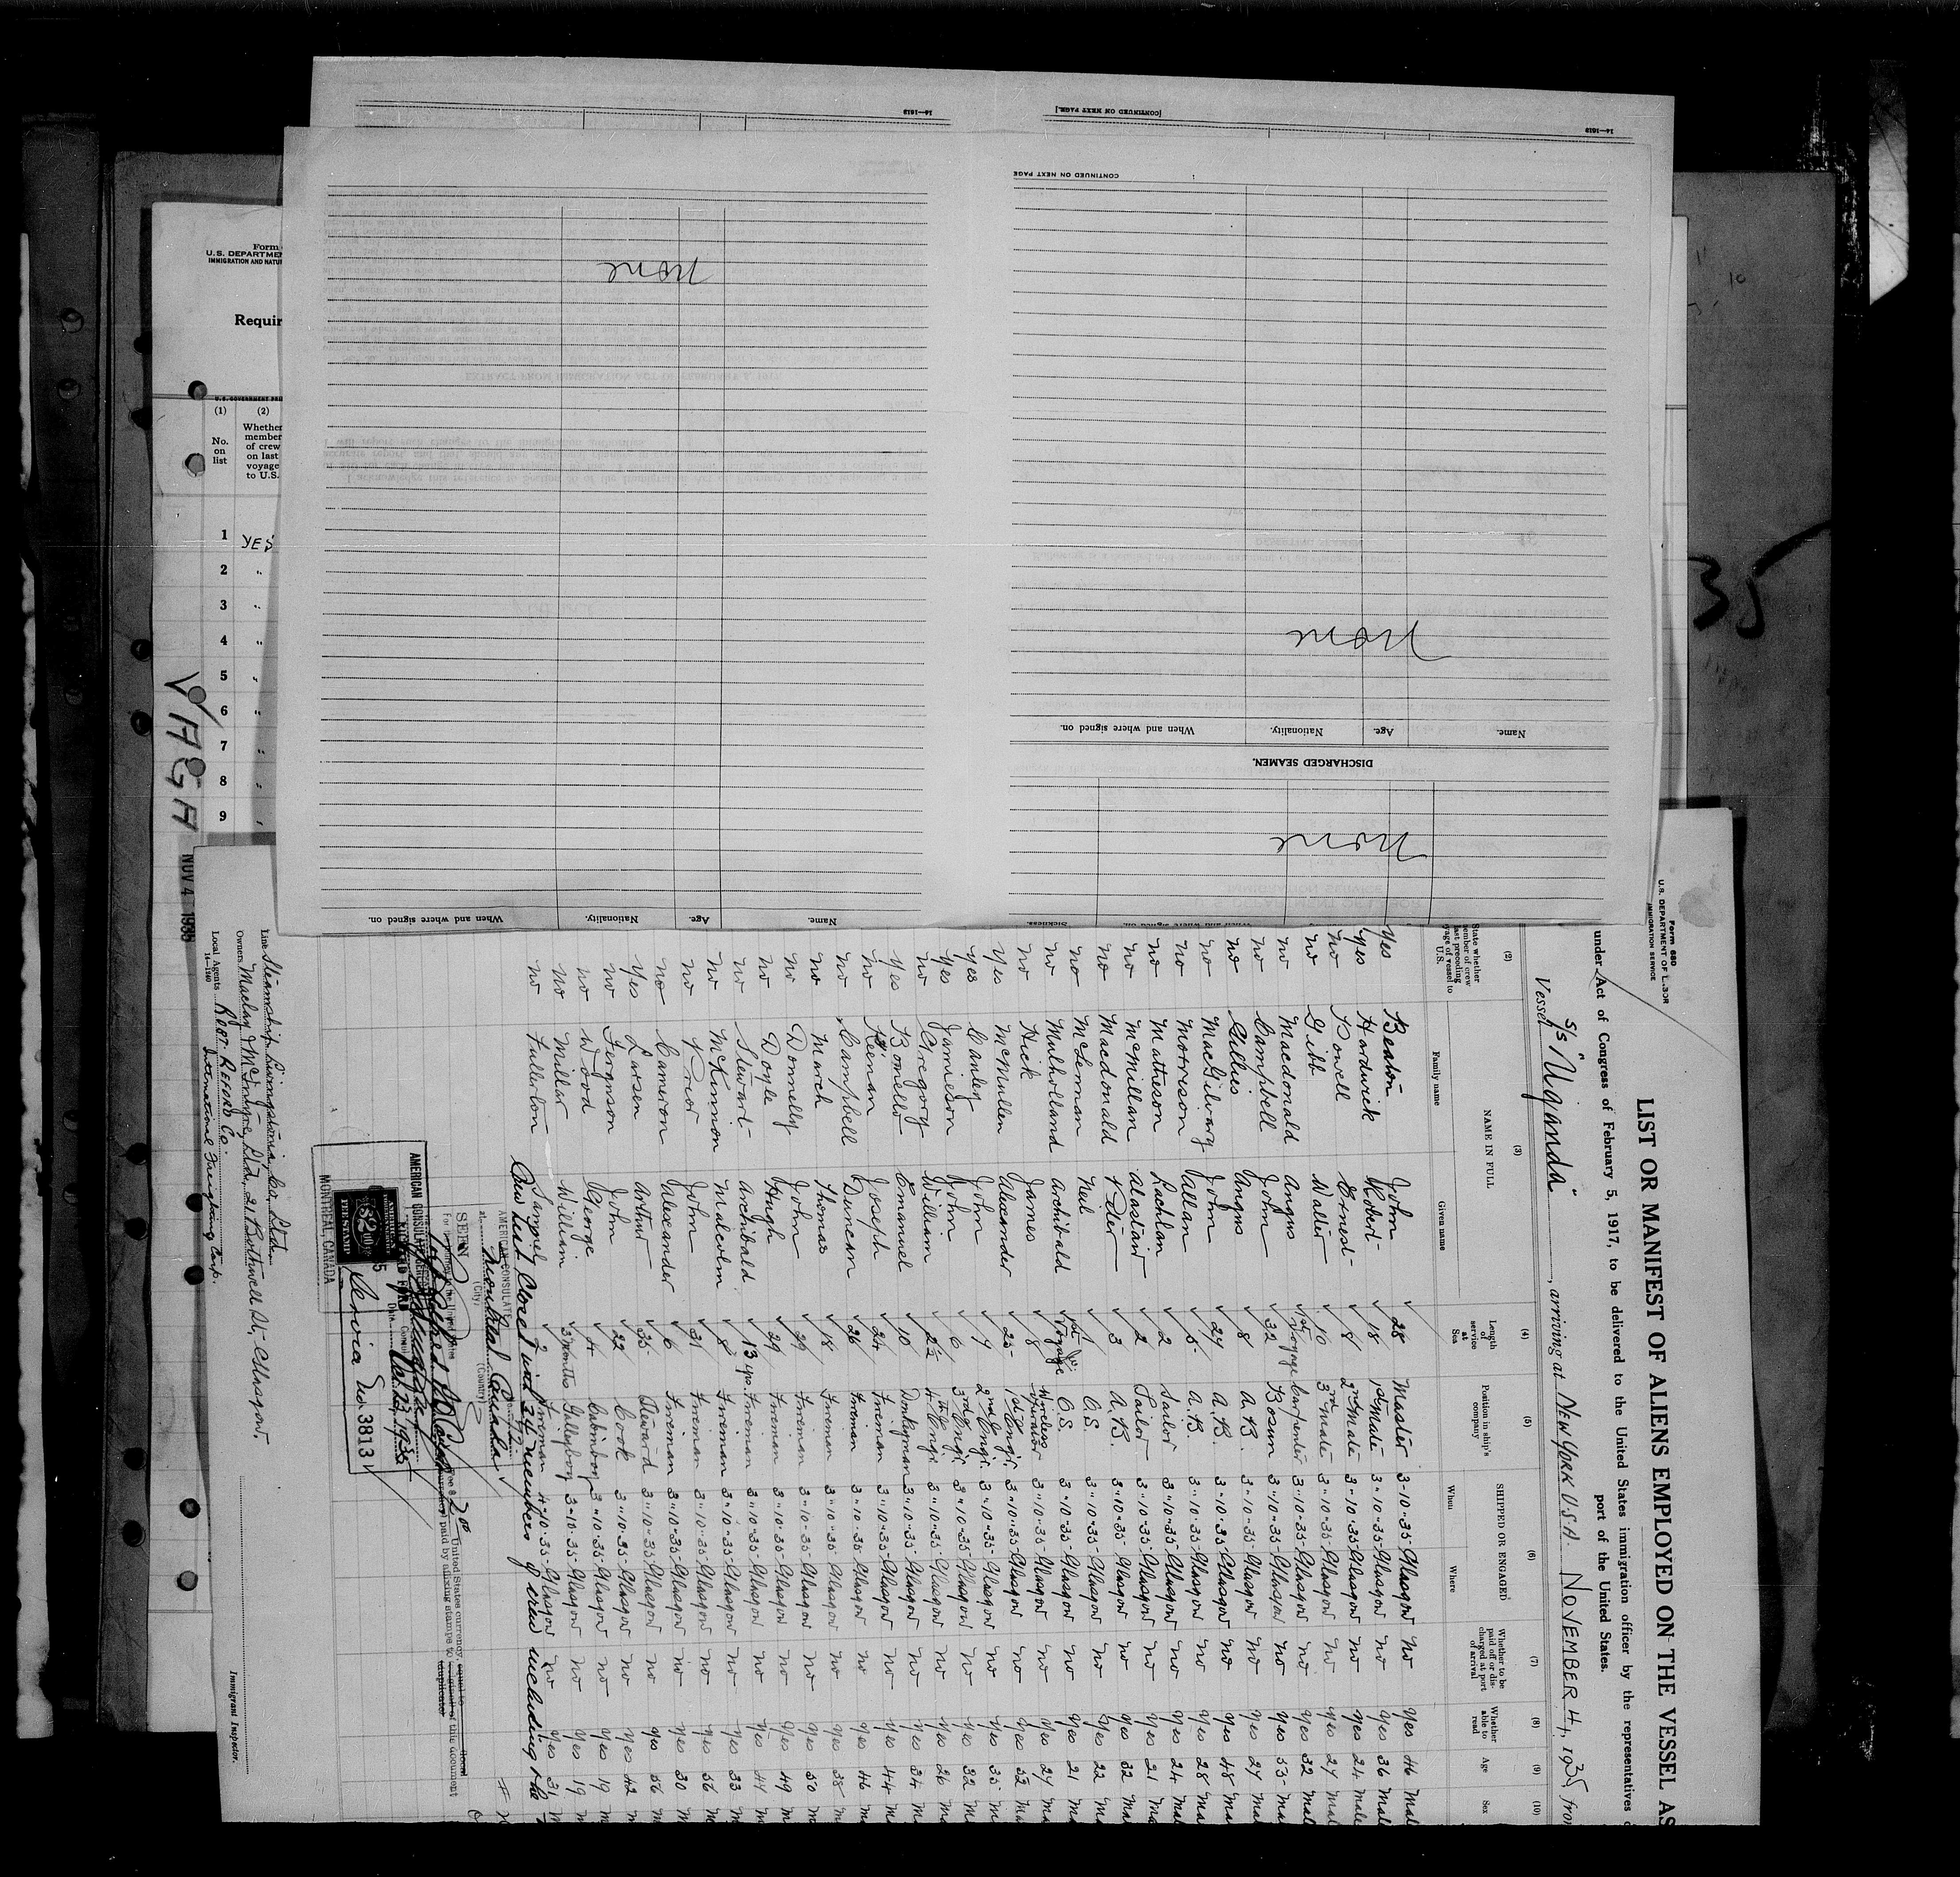 [CONTINUED ON NEXT PAGE.]
14—1619
14—1619
CONTINUED ON NEXT PAGE
None
None
Name. Age. Nationality. When and where signed on.
DISCHARGED SEAMEN.
None
Name. Age. Nationality. When and where signed on.
Form
U.S. DEPARTMEN
IMMIGRATION AND NATU
Requir
(1) (2)
No. on list
Whether member of crew on last voyage to U.S.
1 YES
2 "
3 "
4 "
5 "
6 "
7 "
8 "
9 "
NOV 4 1935
35
Form 680
U.S. DEPARTMENT OF LABOR
IMMIGRATION SERVICE
LIST OR MANIFEST OF ALIENS EMPLOYED ON THE VESSEL AS
under Act of Congress of February 5, 1917, to be delivered to the United States immigration officer by the representatives
port of the United States.
Vessel S/S "Uganda", arriving at NEW YORK U.S.A. NOVEMBER 4, 1935, from
(2) (3) (4) (5) (6) (7) (8) (9) (10)
NAME IN FULL SHIPPED OR ENGAGED
Family name Given name Length of service at Sea Position in ship's company When Where Whether to be paid off or discharged at port of arrival Whether able to read Age Sex
yes Beaton John 28 Master 3-10-35 Glasgow No yes 46 Male
yes Hardwick Robert 18 1st Mate 3-10-35 Glasgow No yes 36 Male
no Powell Ernest 8 2nd Mate 3-10-35 Glasgow No yes 24 Male
no Gibb Walter 10 3rd Mate 3-10-35 Glasgow No yes 27 Male
no Macdonald Angus 1st Voyage Carpenter 3-10-35 Glasgow No yes 32 Male
no Campbell John 32 Bosum 3-10-35 Glasgow No yes 53 Ma
no Gillies Angus 8 A.B 3-10-35 Glasgow No yes 27 Ma
no MacGilvary John 27 A.B. 3-10-35 Glasgow No yes 48 Ma
no Morrison Allan 5 A.B. 3-10-35 Glasgow No yes 28 Ma
no Matheson Lachlan 2 Sailor 3-10-35 Glasgow No yes 24 Ma
no McMillan Alastair 2 Sailor 3-10-35 Glasgow No yes 21 Ma
no Macdonald Peter 3 A.B. 3-10-35 Glasgow No yes 32 Ma
no McLennan Neil O.S. 3-10-35 Glasgow No yes 22 Ma
no Mulholland Archibald 1st Voyage O.S. 3-10-35 Glasgow No yes 21 Ma
no Hick James 8 Wireless Operator 3-10-35 Glasgow No yes 27 Ma
yes McMullen Alexander 25 1st Engr. 3-10-35 Glasgow No yes 52 Ma
yes Canley John 9 2nd Engr. 3-10-35 Glasgow No yes 35 M
yes Jamieson John 6 3rd Engr. 3-10-35 Glasgow No yes 32 Ma
no Gregory William 2½ 4th Engr. 3-10-35 Glasgow No yes 26 Ma
yes Bonello Emanuel 10 Donkeyman 3-10-35 Glasgow No yes 34 M
no Keenan Joseph 24 Fireman 3-10-35 Glasgow No yes 44 M
no Campbell Duncan 26 Fireman 3-10-35 Glasgow No yes 46 M
no March Thomas 18 Fireman 3-10-35 Glasgow No yes 38 M
no Donnelly John 29 Fireman 3-10-35 Glasgow No yes 50 M
no Doyle Hugh 29 Fireman 3-10-35 Glasgow No yes 49 M
no Stewart Archibald 13 yrs. Fireman 3-10-35 Glasgow No yes 44 M
no McKinnon Malcolm 8 Fireman 3-10-35 Glasgow No yes 33 M
no Prior John 31 Fireman 3-10-35 Glasgow No yes 56 M
no Cameron Alexander 6 Fireman 3-10-35 Glasgow No yes 30 M
yes Larsen Arthur 35 Steward 3-10-35 Glasgow No yes 56 M
no Ferguson John 22 Cook 3-10-35 Glasgow No yes 42 M
no Wood George 4 Cabinboy 3-10-35 Glasgow No yes 19 M
no Millar William 3 Months Galleyboy 3-10-35 Glasgow No yes 19 M
no Fullerton Samuel 2 Fireman 4-10-35 Glasgow No yes 31 M
Crew List Closed with 34 members of crew including the
AMERICAN CONSULATE
at Montreal Canada
(City) (Country)
SEEN
For the journey to the United States
Date Oct. 23, 1935
United States currency
paid by affixing stamps to original of this document
AMERICAN CONSULAR SERVICE
$2.00
FEE STAMP
MONTREAL, CANADA
Service No. 3813
Line Steamship Livingstonia Co. Ltd.
Owners Maclay & McIntyre, Ltd., 21 Bothwell St., Glasgow.
Local Agents Robt. Reford Co.
International Freighting Corp.
14—1240
Immigrant Inspector.